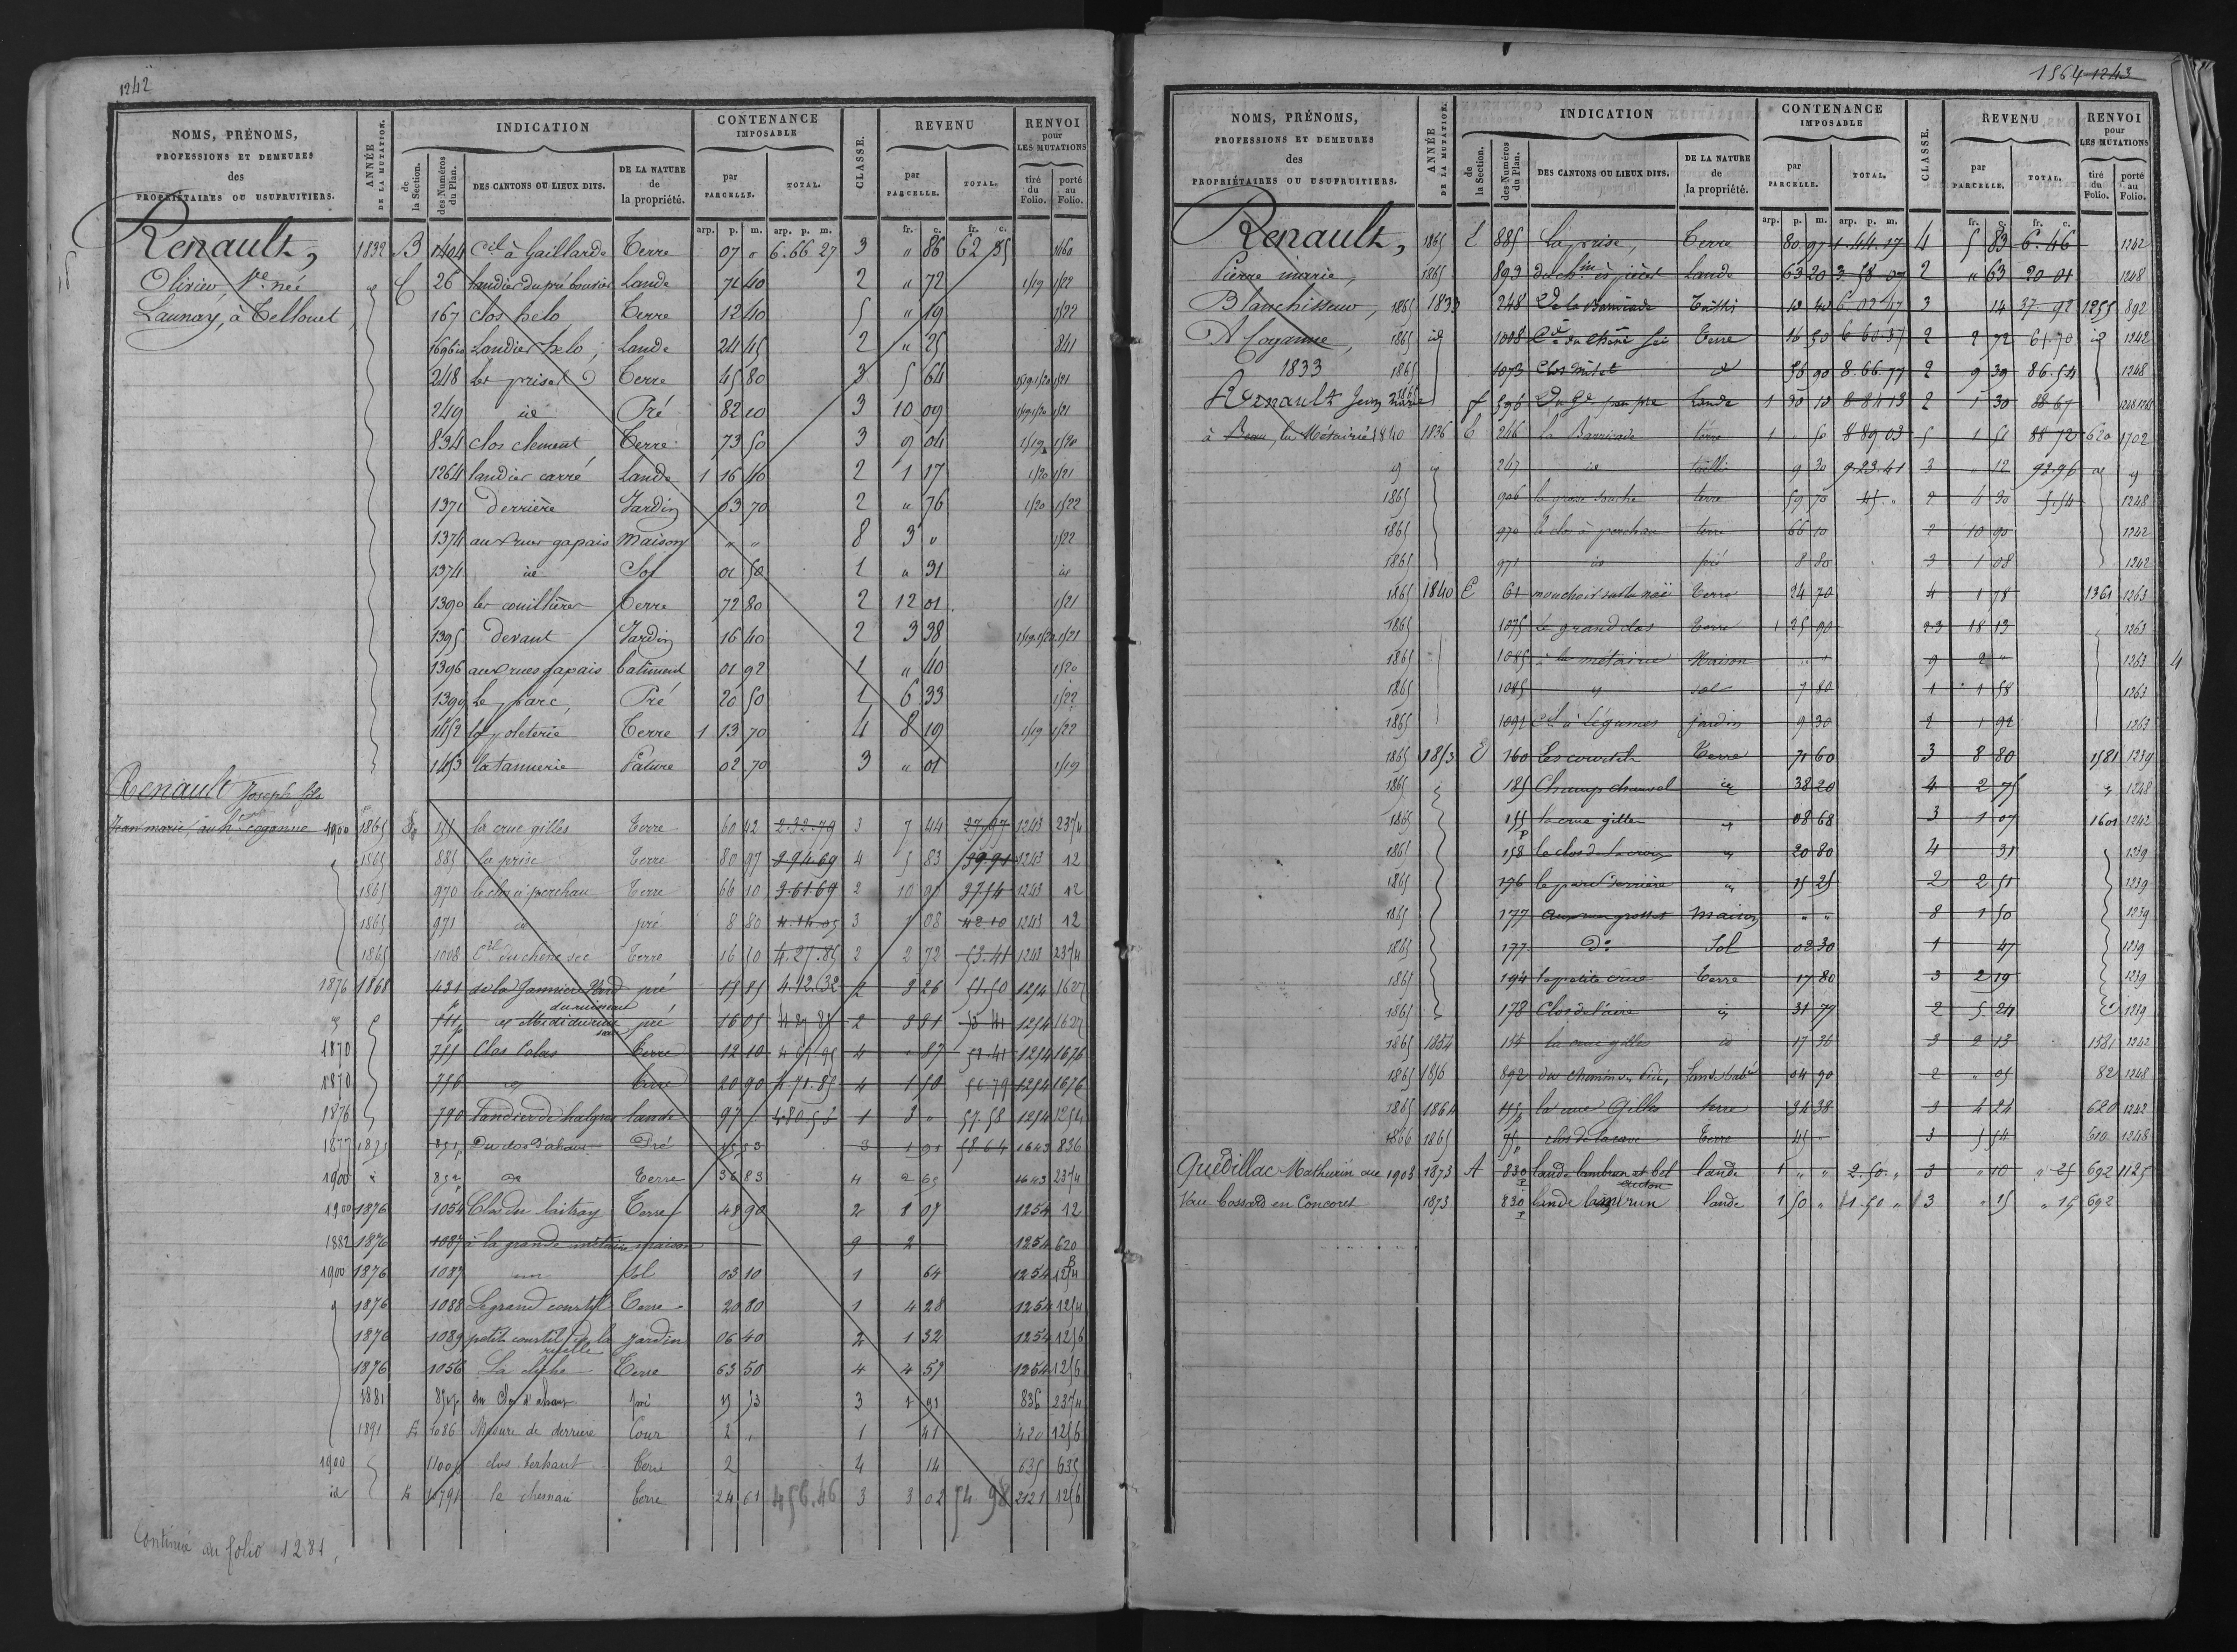 1242
NOMS, PRÉNOMS, PROFESSIONS ET DEMEURES des PROPRIÉTAIRES OU USUFRUITIERS. ANNÉE DE LA MUTATION. INDICATION de la Section. des Numéros du Plan. DES CANTONS OU LIEUX DITS. DE LA NATURE de la propriété. CONTENANCE IMPOSABLE par PARCELLE. TOTAL. CLASSE. REVENU par PARCELLE. TOTAL. RENVOI pour LES MUTATIONS tiré du Folio. porté au Folio.
arp. p. m. arp. p. m. fr. c. fr. c.
Renault, 1832 B 1404 Ctl à Gaillarde Terre 07 " 6.66.27 3 " 86 62 85 1460
Olivier Ve née C 26 landier du pré boursier Lande 71 40 2 " 72 1519 1522
Launay, à Tellouet 167 clos helo Terre 12 40 5 " 19 1522
1696 Landier helo, Lande 24 45 2 " 25 841
248 les prises Terre 45 80 3 5 64 1519.1520 1521
249 id Pré 82 10 3 10 09 1519.1520 1521
834 clos clement Terre 73 50 3 9 04 1519 1520
1264 landier carré Lande 1 16 40 2 1 17 1520 1521
1371 Derrière Jardin 03 70 2 " 76 1520 1522
1374 aux rues gapais Maison " " 8 3 " 1522
1374 id Sol 01 50 1 " 31 id
1390 les couilhères Terre 72 80 2 12 01 1521
1395 Devant Jardin 16 40 2 3 38 1519.1520 1521
1396 aux rues gapais batiment 01 92 1 " 40 1520
1399 Le parc, Pré 20 50 1 6 33 1522
1452 la poleterie Terre 1 13 70 4 8 19 1519 1522
1453 la tannerie Pature 02 70 3 " 01 1519
Renault Joseph fils
Jean marie, au ht coganne 1900 1865 E 155 la crue gilles Terre 60 42 2.32.79 3 7 44 27.97 1243 2374
1865 885 la prise Terre 80 97 2.94.69 4 5 83 39.91 1243 12
1865 970 le clos à porchau Terre 66 10 3.61.69 2 10 90 37.54 1243 12
1865 971 id pré 8 80 4.14.05 3 1 08 42.10 1243 12
1865 1008 Cre du chêne sec Terre 16 50 4.27.85 2 2 72 53.41 1243 2374
1876 1868 431 de la Jannière Nord du ruisseau pré 15 85 4.42.32 2 3 26 51.50 1254 1627
511p id Midi du ruisseau pré 16 05 4.27.85 2 3 31 53 41 1254 1627
1870 755 Clos Colas Terre 12 10 4.57.95 4 " 87 53.41 1254 1676
1870 756 id Terre 20 90 4.71.85 4 1 50 56.79 1254 1676
1876 790 Landier de halgros lande 97 " 480.53 1 3 " 57.58 1254 1254
1877 1875 851p Du clos d'ahaut Pré 15 53 3 1 91 58.64 1643 836
1900 852p id Terre 36 83 4 2 65 1643 2374
1900 1876 1054 Clos du laitray Terre 48 90 2 8 07 1254 12
1882 1876 1087 à la grande métairie maison 9 2 1254 620
1900 1876 1087 Sol 03 10 1 64 1254 1254
1876 1088 Le grand courtil Terre 20 80 1 4 28 1254 1254
1876 1089 petit courtil de la ruelle jardin 06 40 2 1 32 1254 1256
1876 1056 La lèche Terre 63 50 4 4 57 1254 1256
1881 851p du clos d'ahaut pré 15 53 3 1 91 836 2374
1891 E 1086 Masure de derrière Cour 2 " 1 41 420 1256
1900 1100p clos berhaut Terre 2 4 14 635 635
id E 1079p le chenau Terre 24 61 456.46 3 3 02 54 98 2121 1256
Continué au folio 1281.
1564 1243
NOMS, PRÉNOMS, PROFESSIONS ET DEMEURES des PROPRIÉTAIRES OU USUFRUITIERS. ANNÉE DE LA MUTATION. INDICATION de la Section. des Numéros du Plan. DES CANTONS OU LIEUX DITS. DE LA NATURE de la propriété. CONTENANCE IMPOSABLE par PARCELLE. TOTAL. CLASSE. REVENU par PARCELLE. TOTAL. RENVOI pour LES MUTATIONS tiré du Folio. porté au Folio.
arp. p. m. arp. p. m. fr. c. fr. c.
Renault, 1865 E 885 La prise, Terre 80 97 1.44.17 4 5 83 6.46 1242
Pierre marie, 1865 893 du chin ès pièces Lande 63 20 3 58 07 2 " 63 20 01 1248
Blanchisseur, 1865 1833 248 Ld de la Barricade Taillis 10 40 6 02 47 3 14 37 92 1255 892
A Coganne, 1865 id 1008 Cre du chêne sec Terre 16 50 6 60 37 2 2 72 61.70 id 1242
1833 1865 1073 Clos Milet id 56 90 8.66.77 2 9 39 86.54 1248
Renault Jean marie 596 Lande 1 30 10 8 84 13 2 1 30 88 67 1248
à Beau, la Métairie 1840 1836 E 246 La Barricade terre 1 " 50 8 89 03 5 1 51 88 72 620 1702
247 id taillis 9 30 9.23.41 3 " 12 92.96
1865 906 la grosse souche terre 59 70 45 " 2 4 30 5.54 1248
1865 970 le clos à porchau terre 66 10 2 10 90 1242
1865 971 id pré 8 80 3 1 08 1242
1865 1840 E 61 mouchoir sur la noë Terre 24 70 4 1 78 1361 1263
1865 1075 Le grand clos Terre 1 25 90 2 3 18 13 1263
1865 1085 à la métairie Maison " " 9 2 " 1263 4
1865 1085 id sol 7 80 1 1 58 1263
1865 1091 Ctl à Légumes jardin 9 30 2 1 92 1263
1865 1853 E 160 Les courtils Terre 71 60 3 8 80 1581 1239
1865 185 Champ chauvel id 38 20 4 2 75 1248
1865 155p la crue gilles id 08 68 3 1 07 1601 1242
1865 158 le clos de la croix id 20 80 4 31 1239
1865 176 le parc derrière id 15 25 2 2 51 1239
1865 177 aux rues grosset Maison " " 8 1 50 1239
1865 177 Do Sol 02 30 1 47 1239
1865 194 la petite crue Terre 17 80 3 2 19 1239
1865 178 Clos de l'aire id 31 77 2 5 24 1239
1865 1854 155 la crue gilles id 17 36 3 2 13 1581 1242
1865 1856 892 du chemin 04 90 2 " 05 82 1248
1865 1864 155p la crue Gilles terre 34 38 3 4 24 620 1242
1866 1865 75p clos de la cave Terre 45 " 3 5 54 610 1248
Quedillac Mathurin au 1903 1873 A 830p lande lambrun et bel lande 1 " " 2.50. " 3 " 10 " 25 692 1125
Vau bossard en Concoret 1873 830p lande lambrun lande 1 50 " 1.50 " 3 " 15 " 15 692